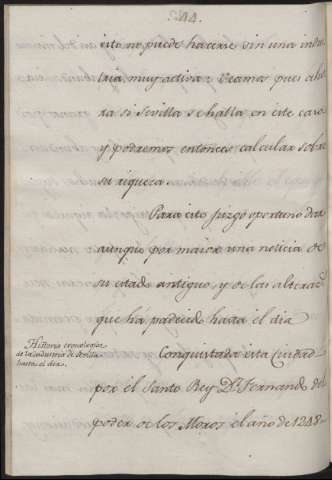 244.
esto no puede hacerse sin una indus
tria muy activa: Veamos pues ahi
ra si Sevilla se halla en este caso
y podremos entonces calcular sobre
su riqueza.
Para esto juzgo oportuno dar
aunque por maior una noticia de
su estado antiguo, y de las alterac.s
que ha padecido hasta el dia
Historia cronologica
de la industria de Sevilla
hasta el dia.
Conquistada esta Ciudad
por el Santo Rey Dn. Fernando del
poder de los Moros el año de 1248